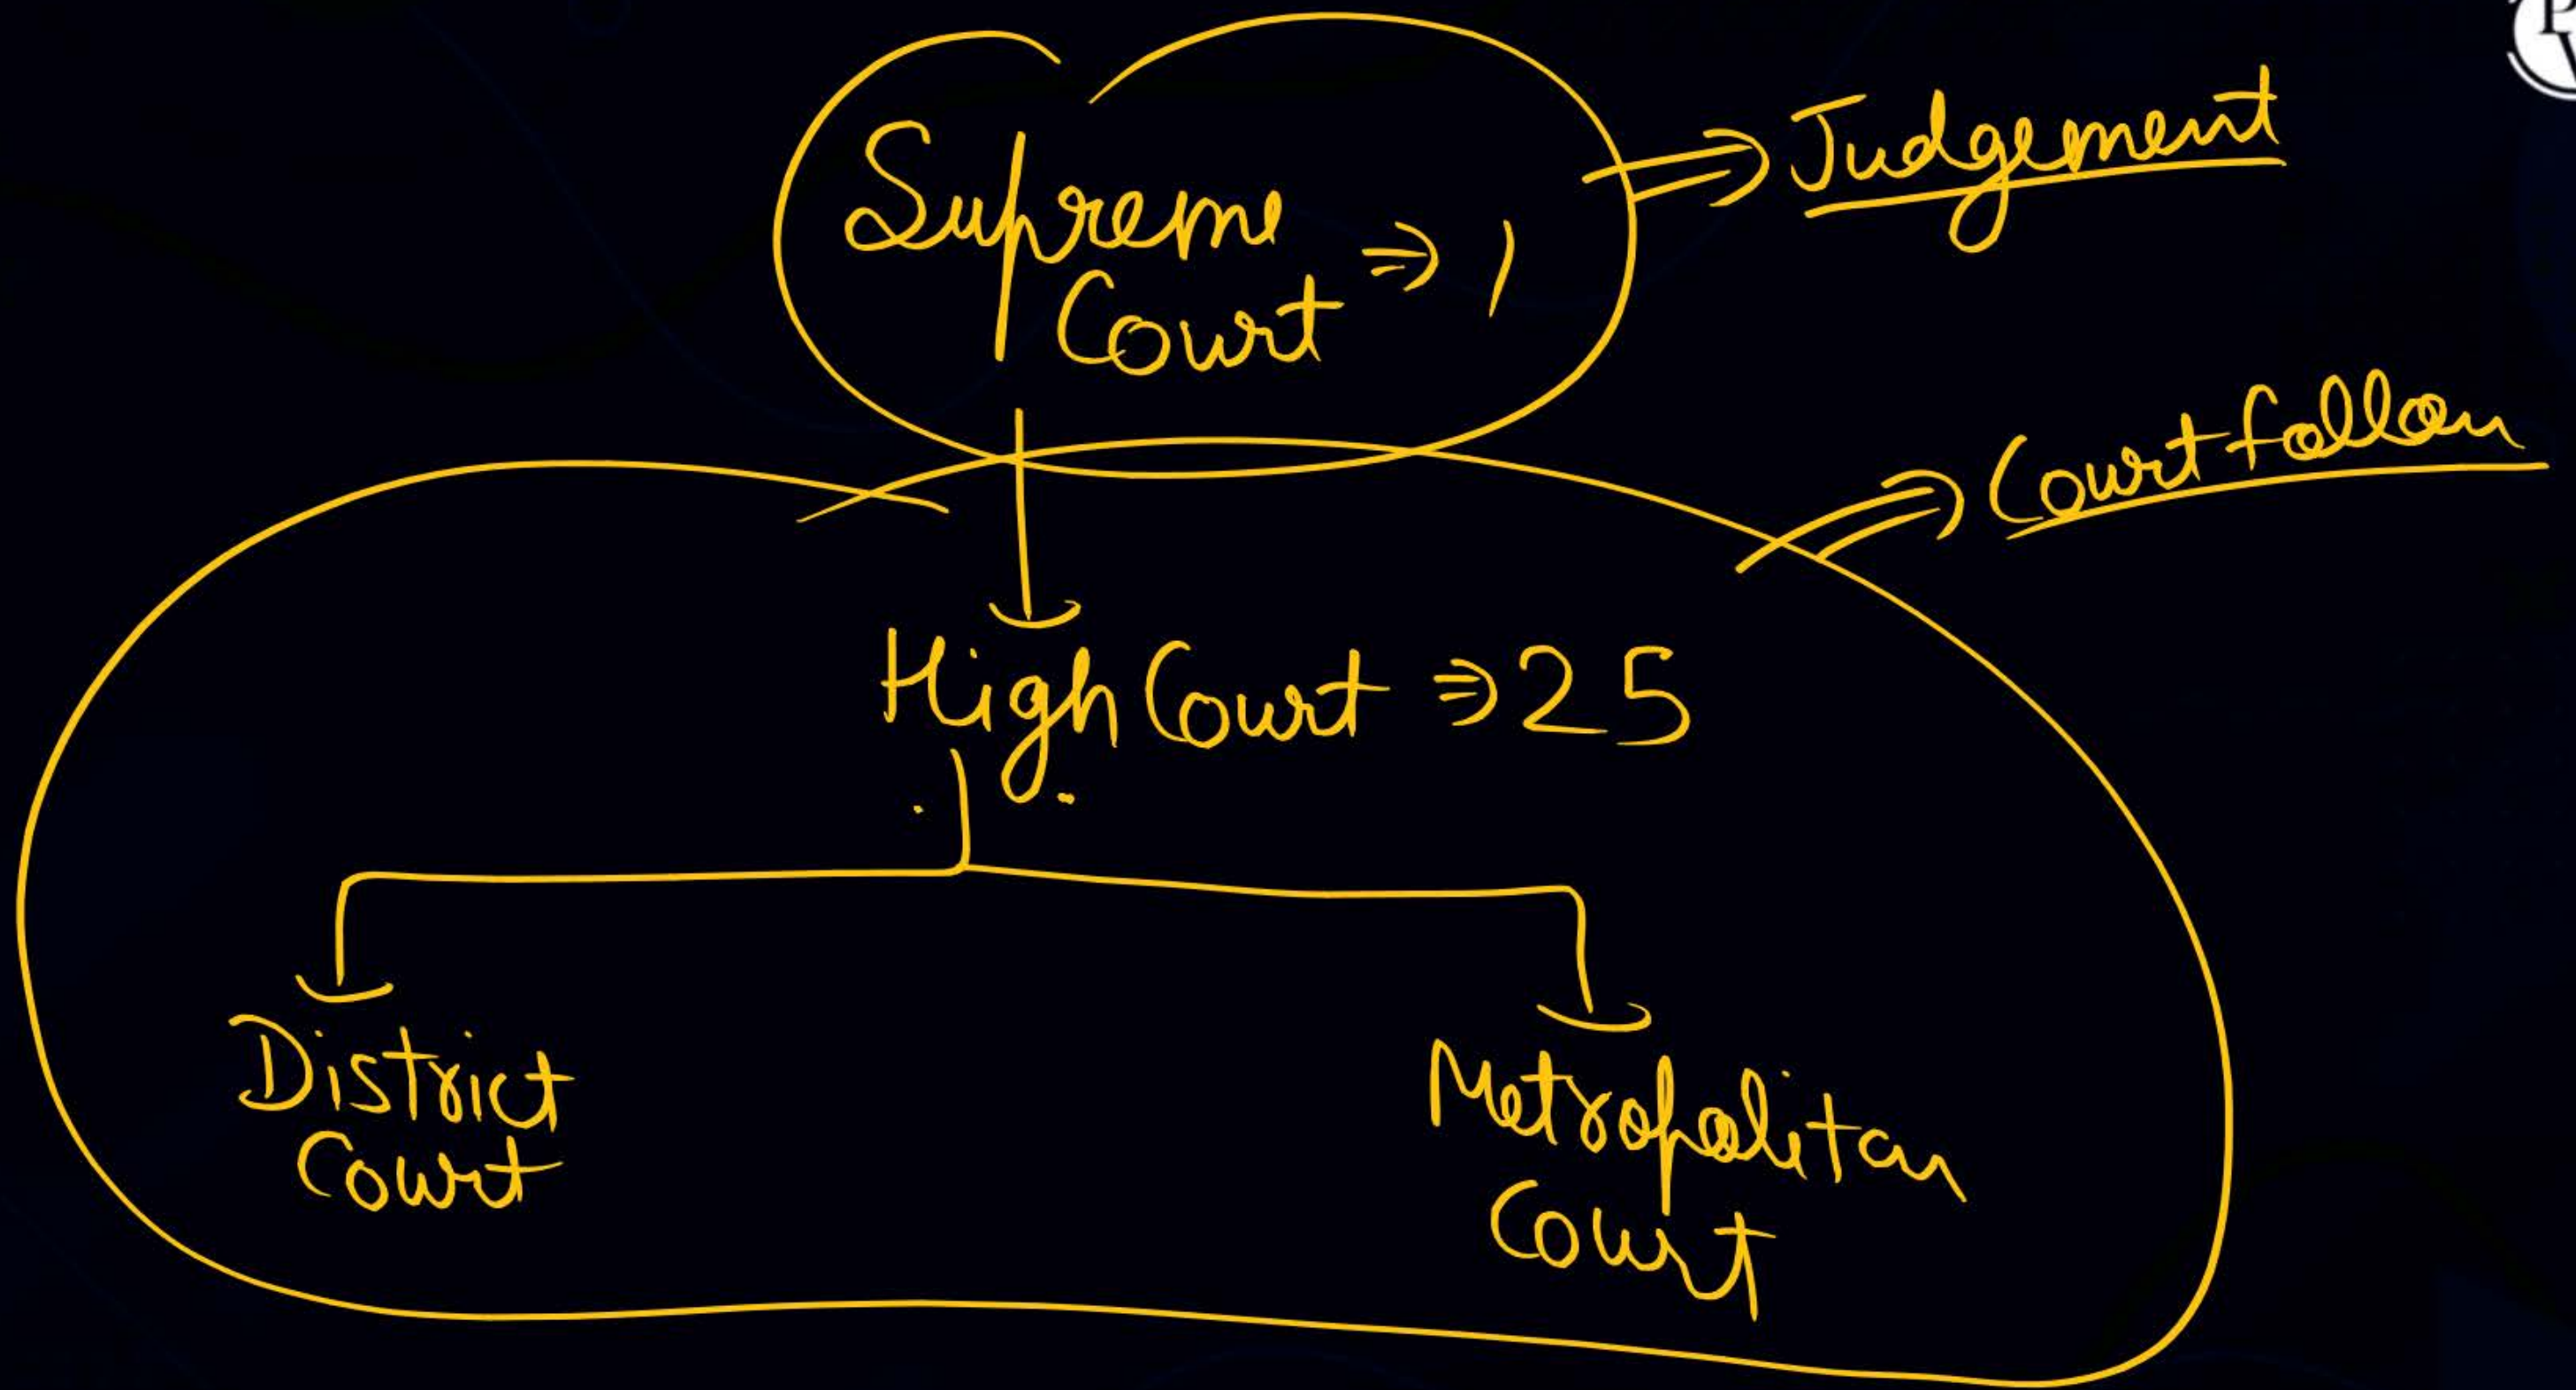 Supreme
Court ⇒ 1
⇒ Judgement
⇒ Court follow
High Court ⇒ 25
District
Court
Metropolitan
Court